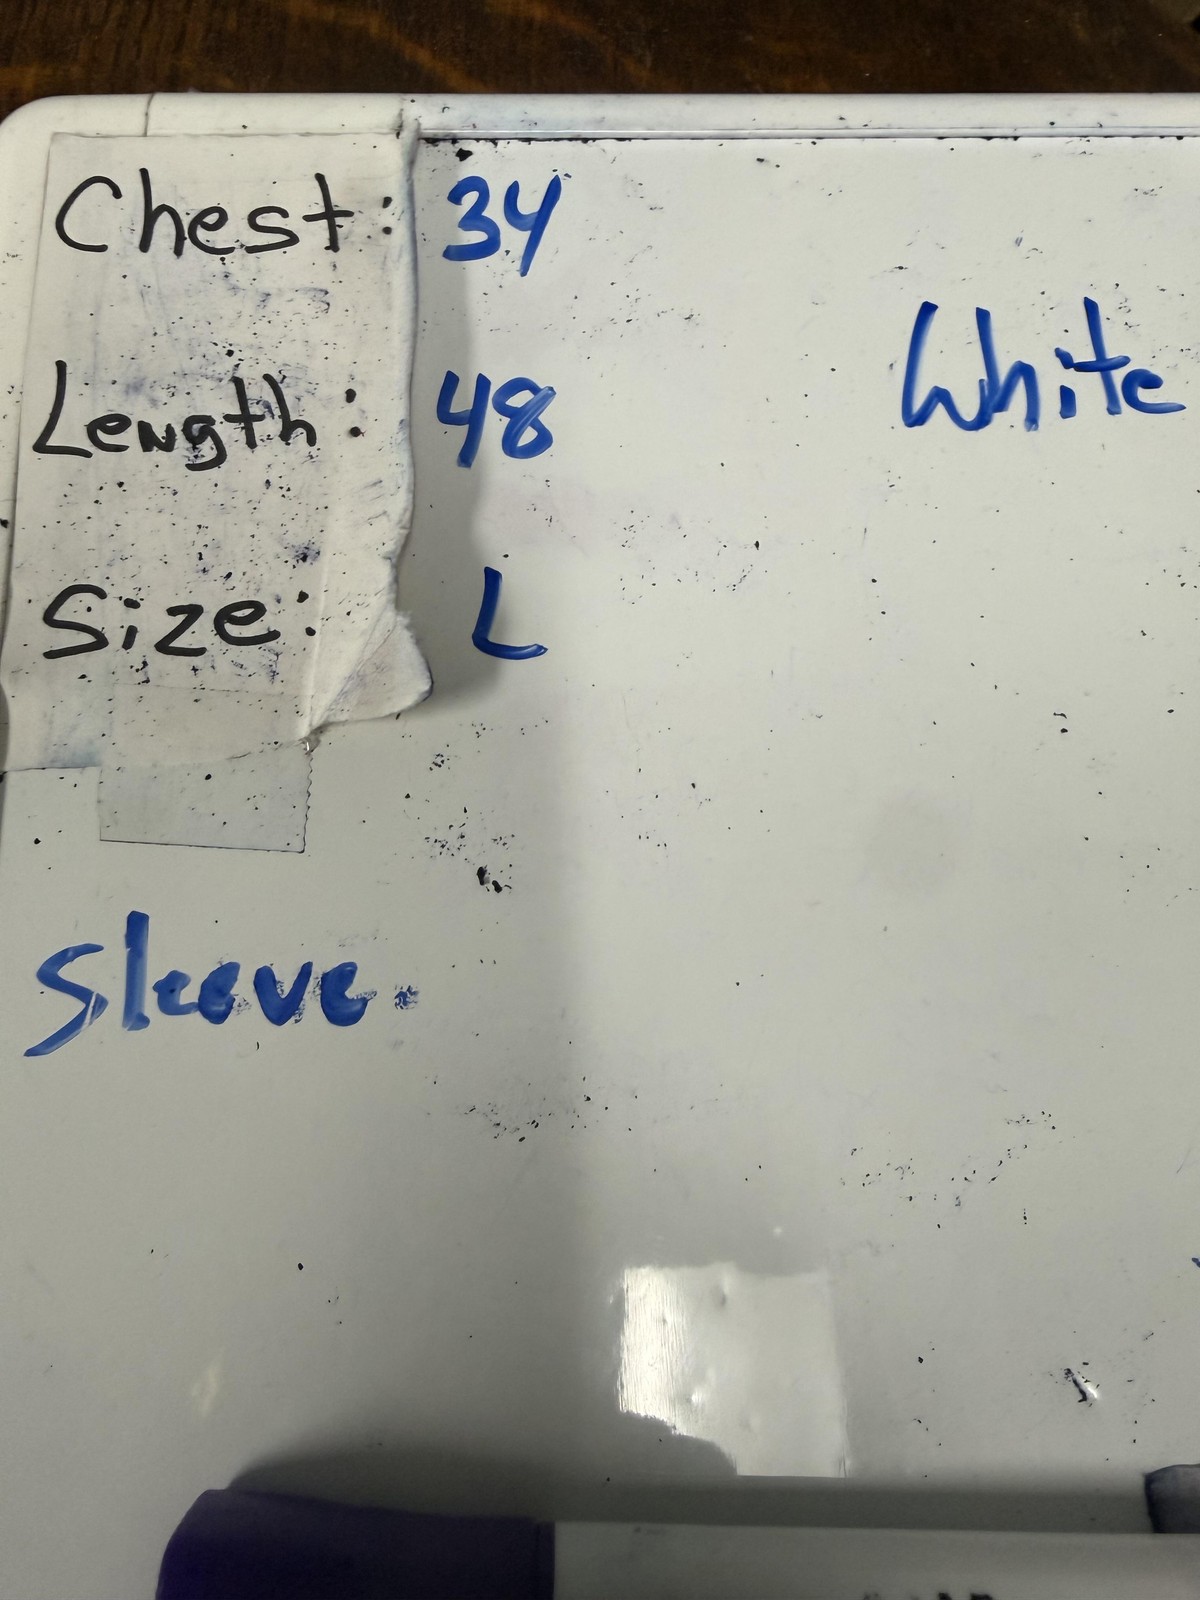 Chest: 34
White
Length: 48
Size: L
Sleeve.